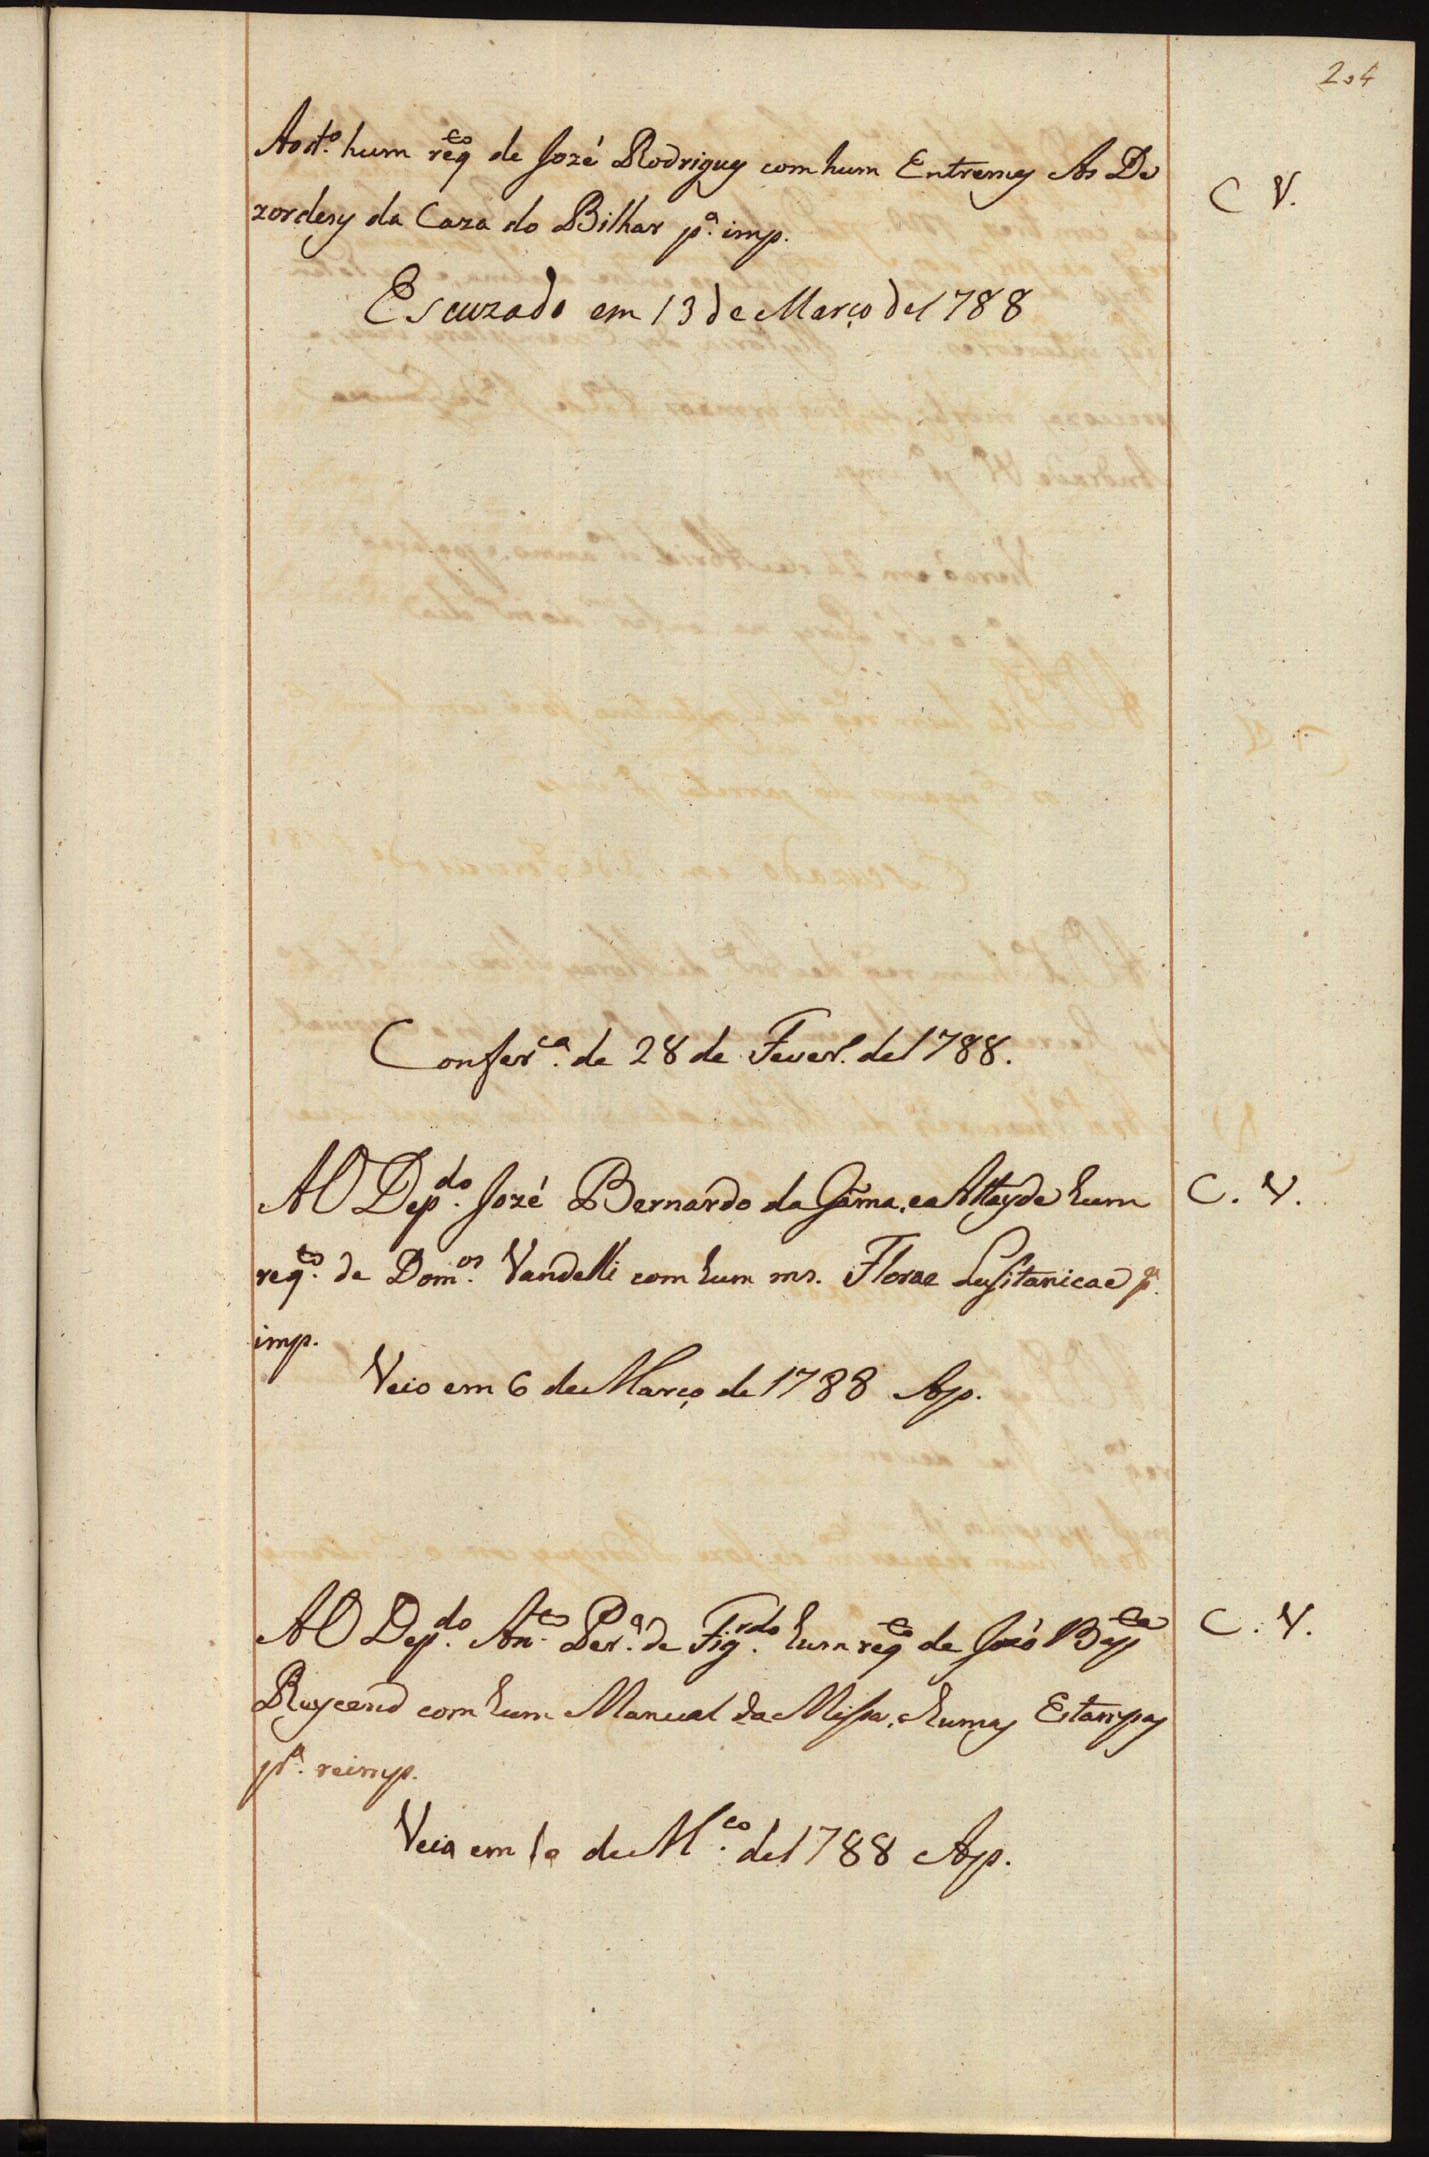 204
Ao d.to hum reqto de Jozé Rodrigues com hum Entremes As De
C V.
zordens da Caza do Bilhar p.a imp.
Escuzado em 13 de Março de 1788
Confer.ca de 28 de Fever.o de 1788.
AO Dep.do Jozé Bernardo da Gama, e Attayde hum
C. V.
req.to de Dom.os Vandelli com hum ms. Florae Lusitanicae p.a
imp.
Veio em 6 de Março de 1788 Ap.
AO Dep.do An.to Per.a de Fig.rdo hum reqto de Jozé Bapta
C. V.
com hum Manual da Missa, e humas Estampas
p.a reimp.
Veio em 10 de M.ço de 1788 Ap.